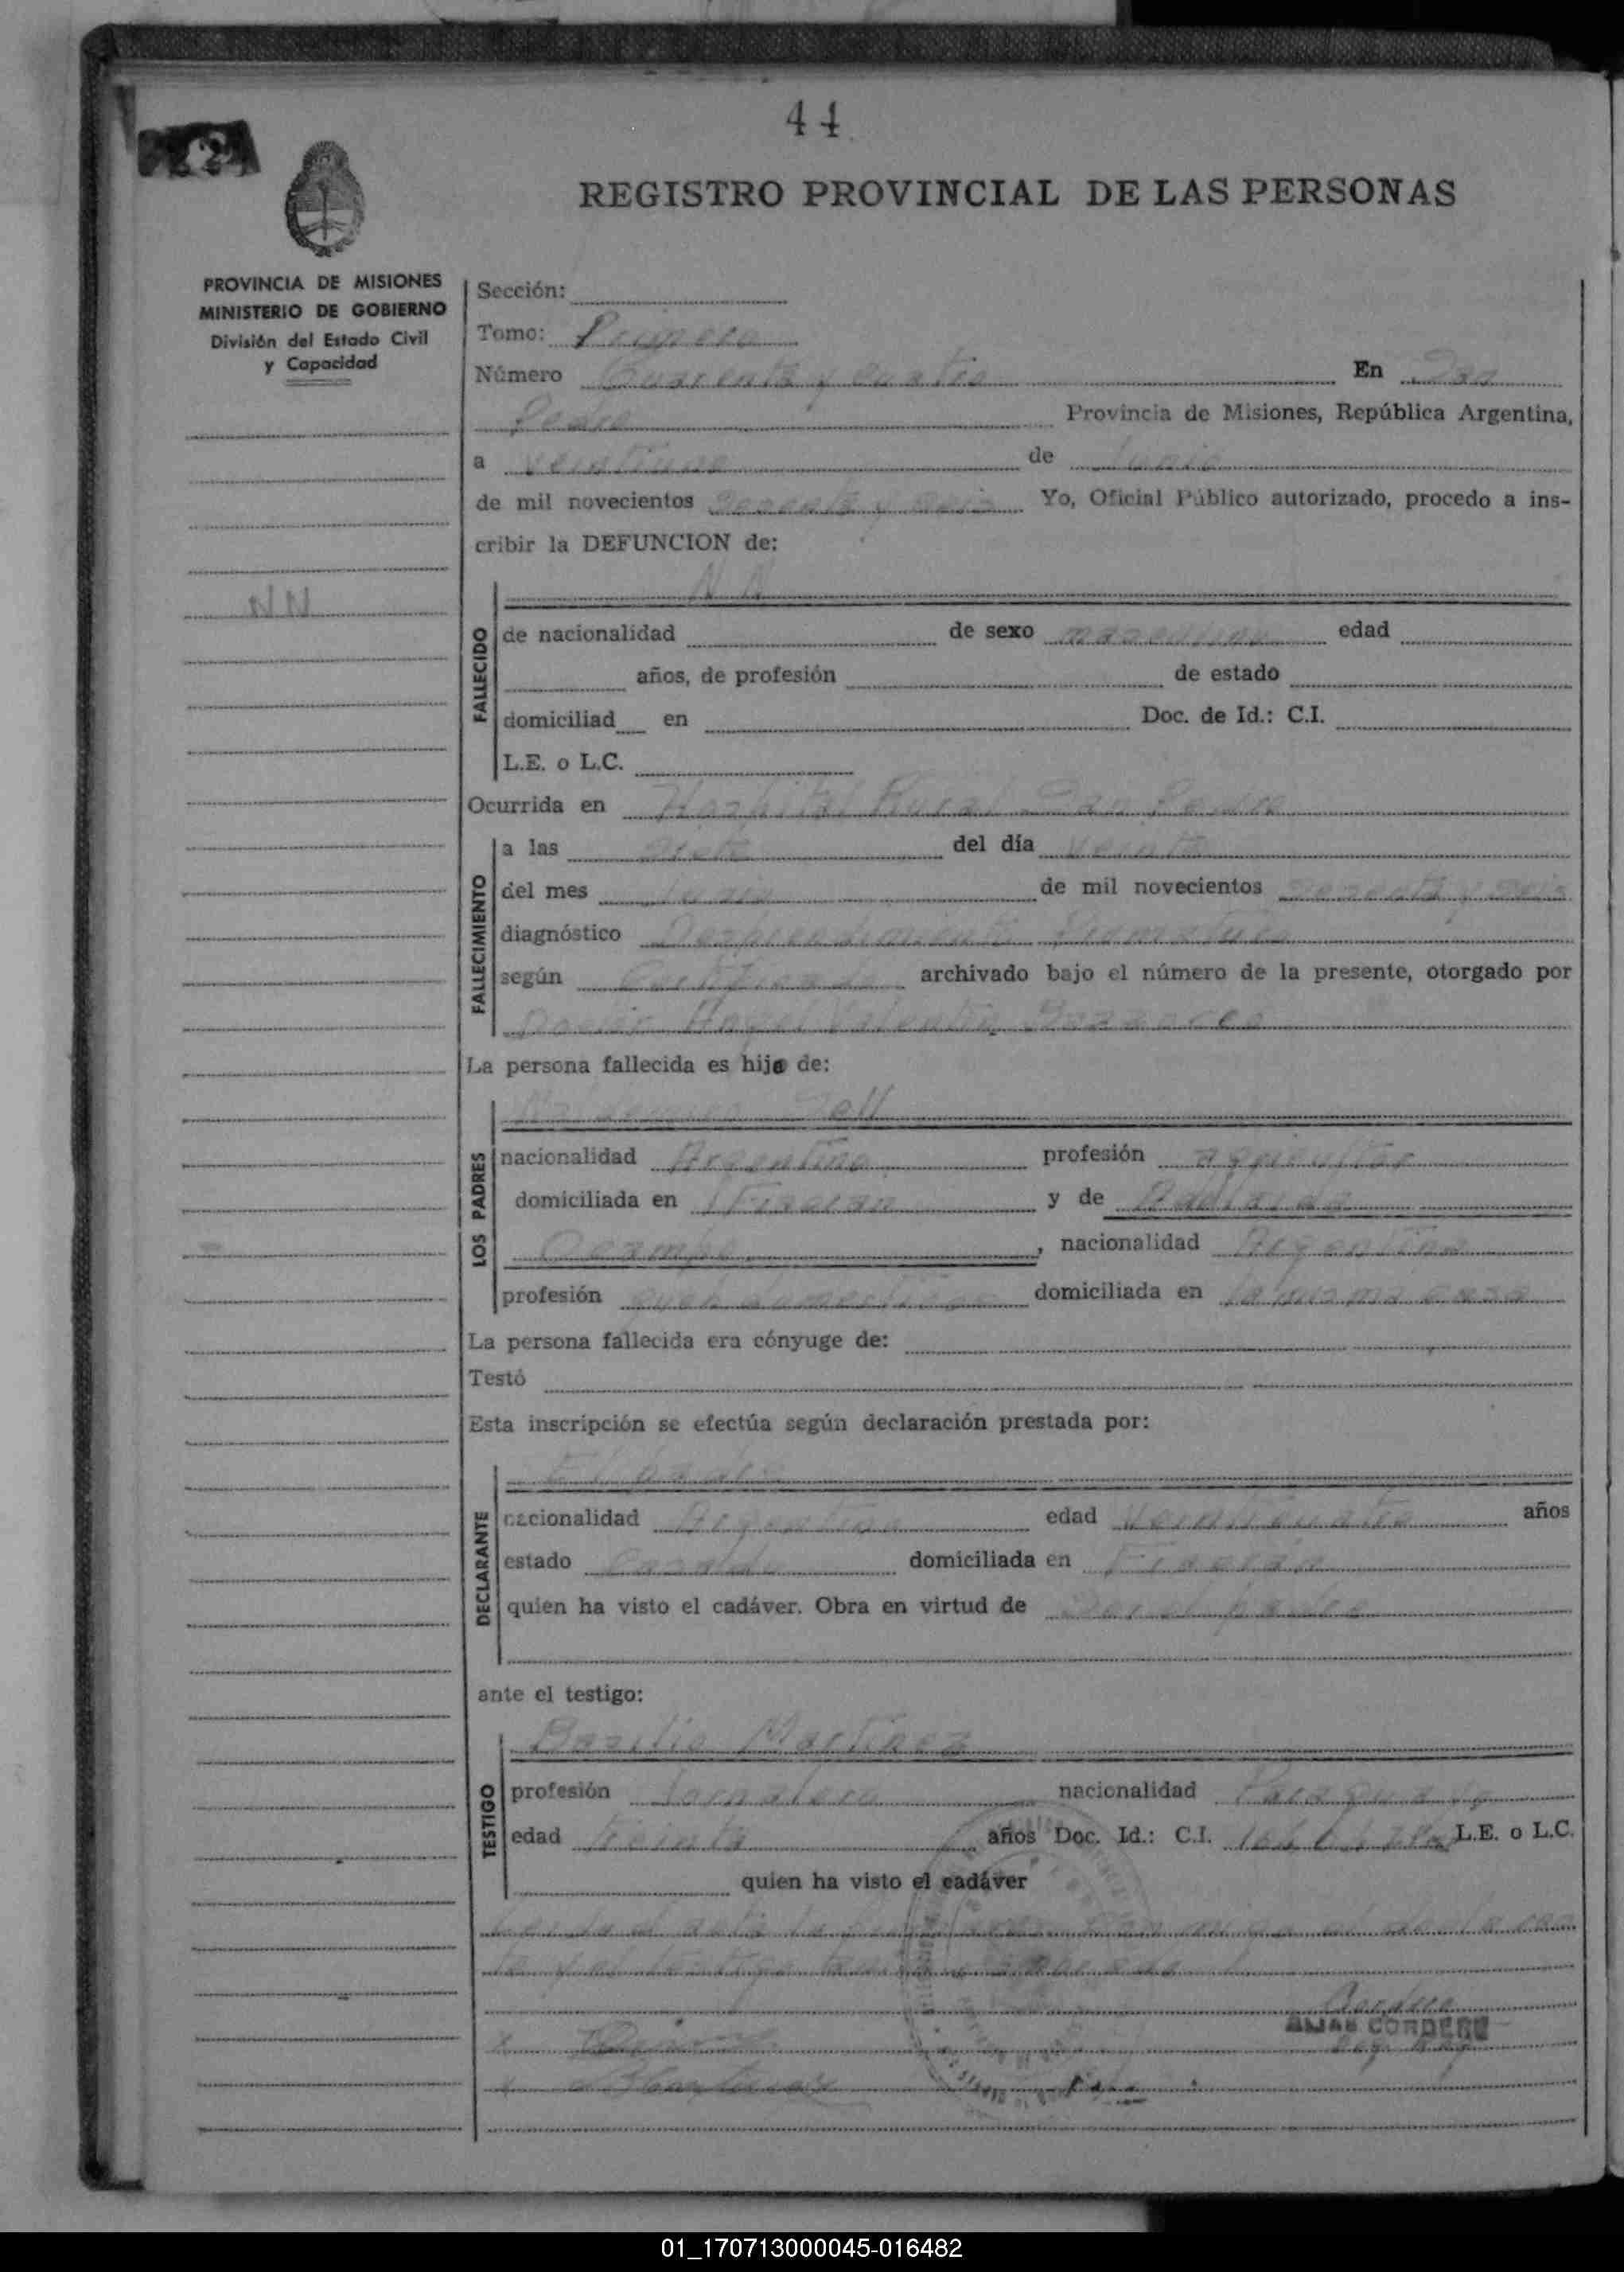 44
REGISTRO PROVINCIAL DE LAS PERSONAS
PROVINCIA DE MISIONES
MINISTERIO DE GOBIERNO
División del Estado Civil
y Capacidad
NN
Sección:
Tomo: Primero
Número Cuarenta y cuatro En San
Pedro Provincia de Misiones, República Argentina,
a veintiuno de Junio
de mil novecientos sesenta y seis Yo, Oficial Público autorizado, procedo a ins-
cribir la DEFUNCION de:
N N
FALLECIDO
de nacionalidad de sexo masculino edad
años, de profesión de estado
domiciliad en Doc. de Id.: C.I.
L.E. o L.C.
Ocurrida en Hospital Rural San Pedro
FALLECIMIENTO
a las siete del día veinte
del mes Junio de mil novecientos sesenta y seis
diagnóstico Desprendimiento Prematuro
según Certificado archivado bajo el número de la presente, otorgado por
Doctor Angel Valentín
La persona fallecida es hijo de:
LOS PADRES
nacionalidad Argentino profesión agricultor
domiciliada en Fracrán y de
Ocampo, nacionalidad Argentina
profesión domiciliada en la misma casa
La persona fallecida era cónyuge de:
Testó
Esta inscripción se efectúa según declaración prestada por:
DECLARANTE
El padre
nacionalidad Argentino edad veinticuatro años
estado Casado domiciliada en Fracrán
quien ha visto el cadáver. Obra en virtud de ser el padre
ante el testigo:
TESTIGO
Basilio Martinez
profesión Jornalero nacionalidad Paraguayo
edad treinta años Doc. Id.: C.I. L.E. o L.C.
quien ha visto el cadáver
Leída el acta
CORDERO
01_170713000045-016482